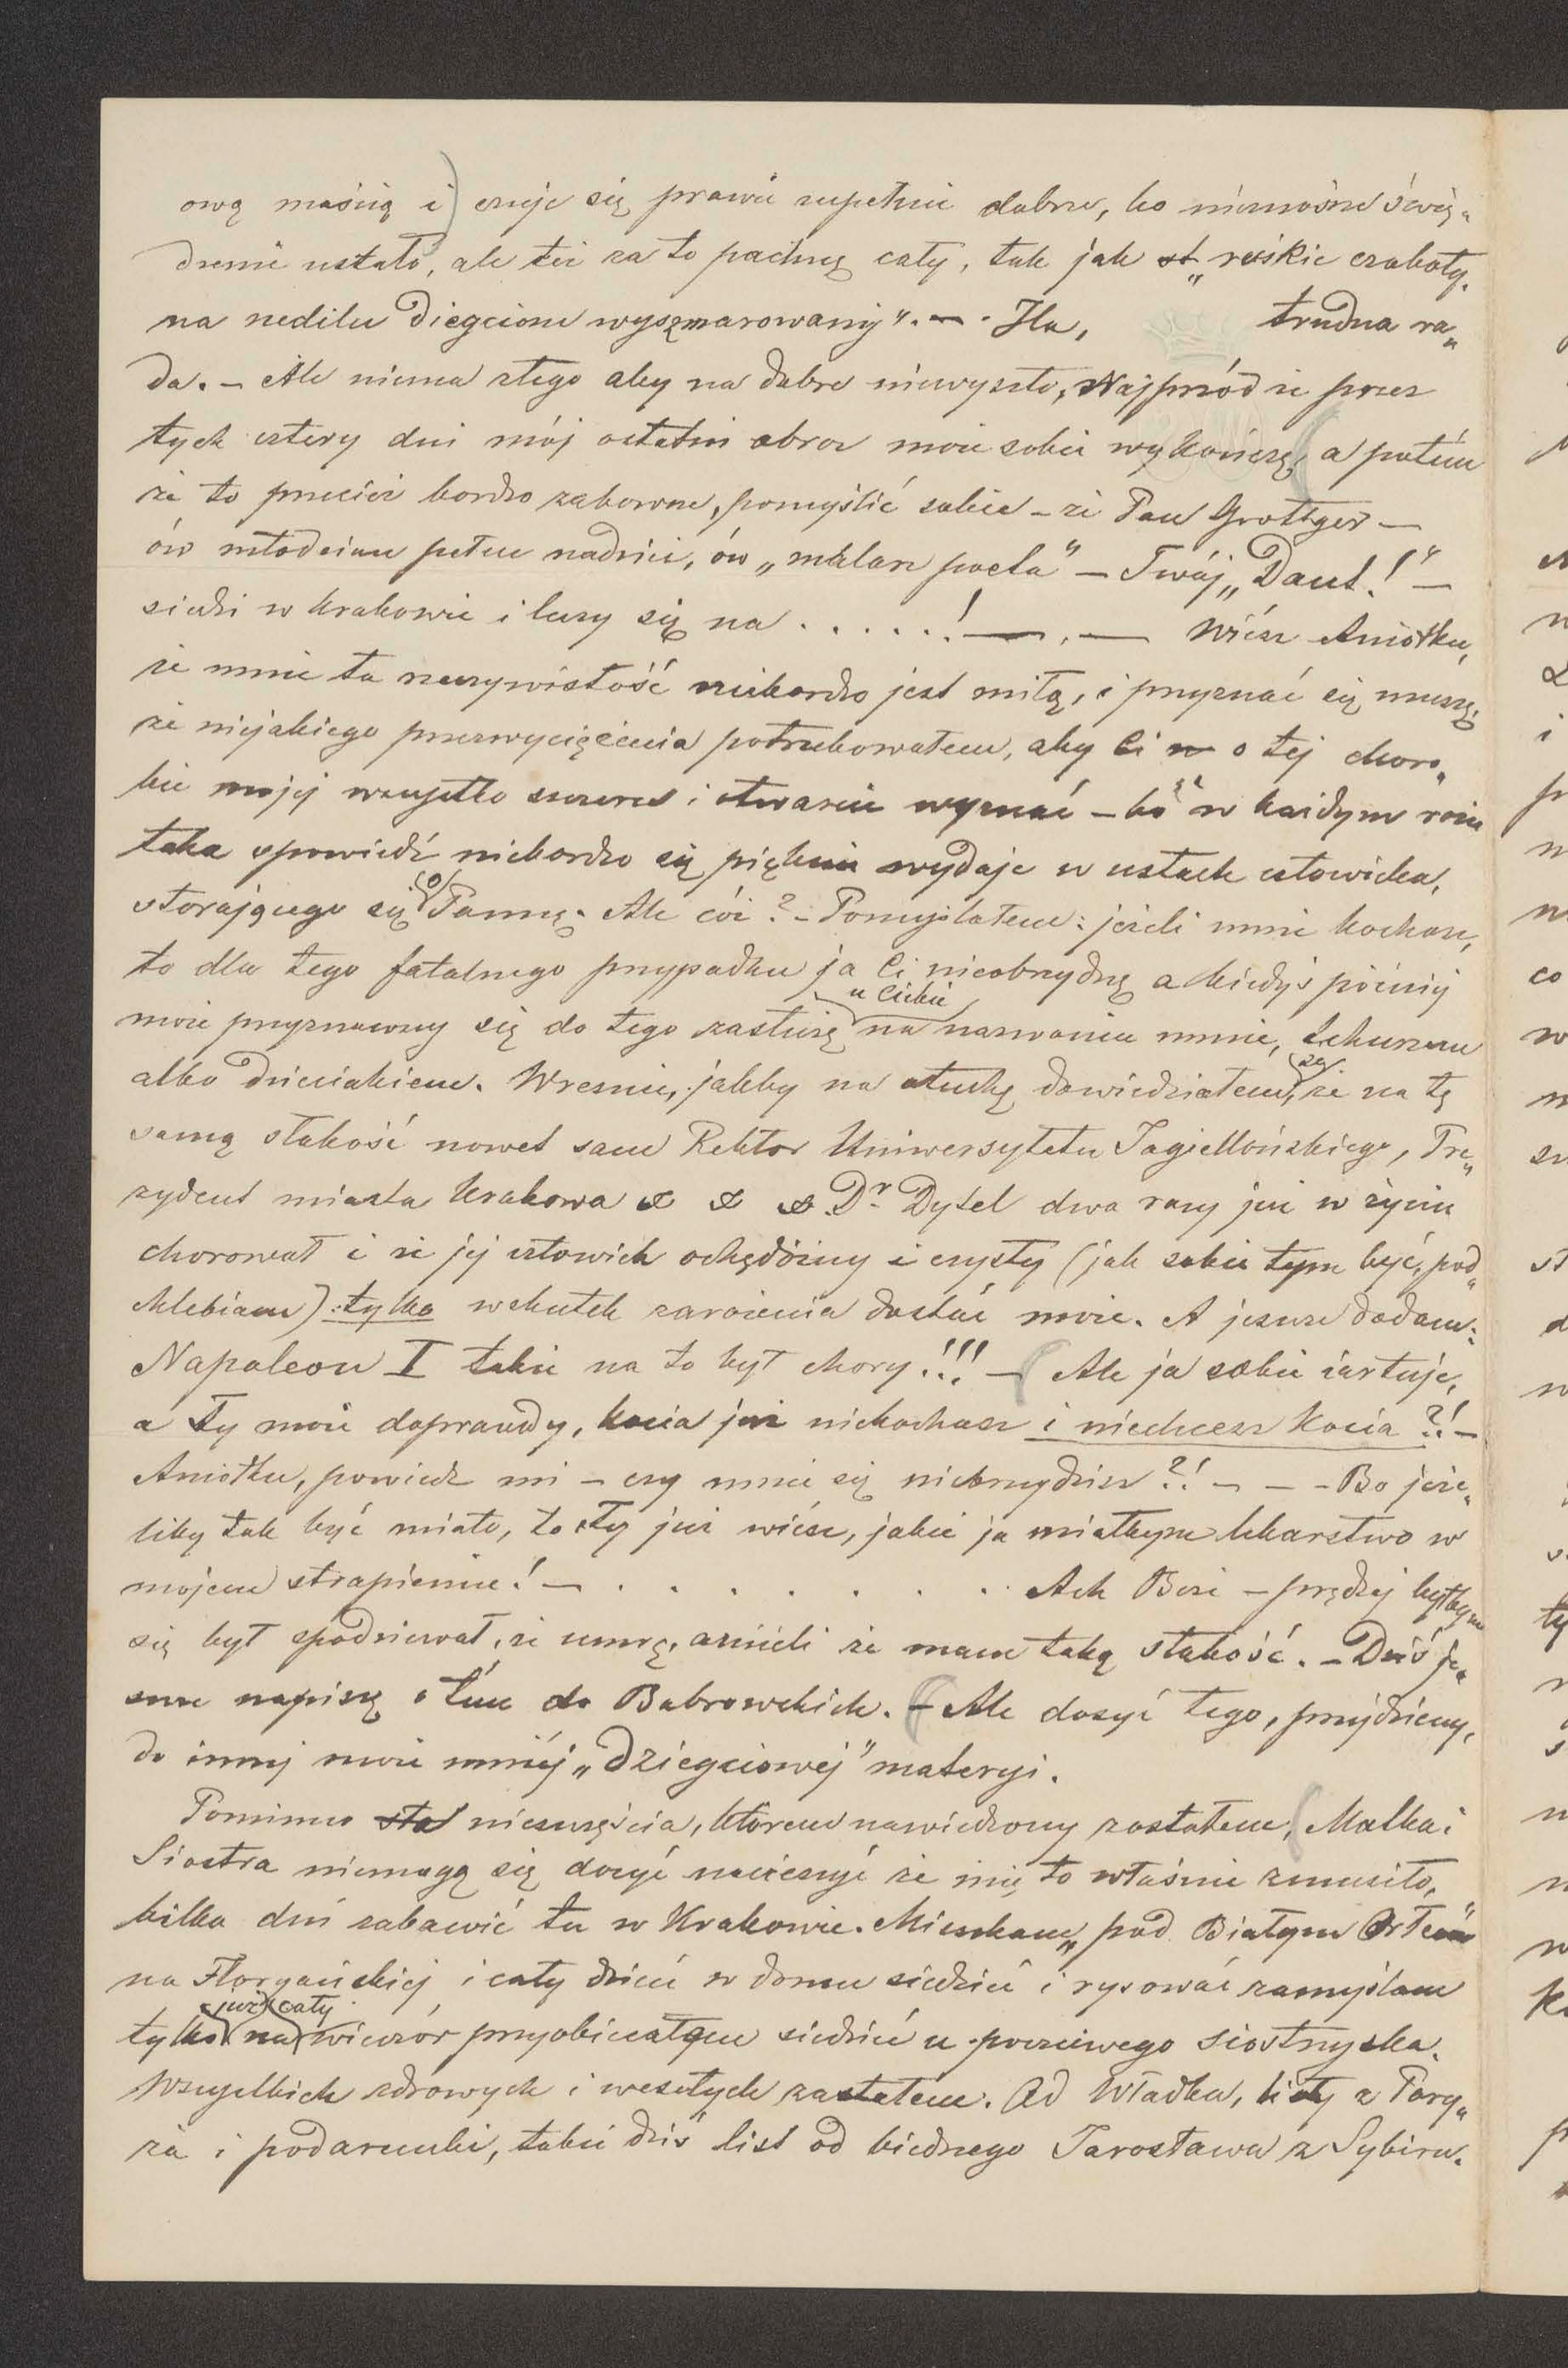 ową maścią i) czuję się prawie zupełnie dobrze, bo nieznośne świę„
dzenie ustało, ale też za to pachnę cały, tak jak st „ruskie czoboty
na nedilu diegciom wyszmarowany". — Ha, trudna ra„
da. — Ale niema złego aby na dobre niewyszło, Najprzód że przez
tych cztery dni mój ostatni obraz może sobie wykończę, a potém
że to przecież bardzo zabawne, pomyślić sobie – że Pan Grottger —
ów młodzian pełen nadziei, ów „malarz poeta" — Twój „Dant!" —
siedzi w Krakowie i leczy się na . . . . . .! — . — Wiész Aniołku,
że mnie ta rzeczywistość niebardzo jest miłą, i przyznać się muszę,
że niejakiego przezwyciężenia potrzebowałem, aby Ci w o tej choro„
bie mojej wszystko szczerze i otwarcie wyznać – bo w każdym razie
taka spowiedź niebardzo się pięknie wydaje w ustach człowieka,
starającego się o Pannę. Ale cóż? – Pomyślałem: jeżeli mnie kochasz,
to dla tego fatalnego przypadku ja Ci nieobrzydnę a kiedyś później
może przyznawszy się do tego zasłużę u Ciebie na nazwanie mnie, tchurzem
albo dzieciakiem. Wreszcie, jakby na otuchę dowiedziałem się, że na tę
samą słabość nawet sam Rektor Uniwersytetu Jagiellońskiego, Pre„
zydent miasta Krakowa & & & Dr Dytel dwa razy już w życiu
chorował i że jej człowiek ochędóżny i czysty (jak sobie tym być, pod„
chlebiam) tylko wskutek zarażenia dostać może. A jeszcze dodam:
Napoleon I także na to był chory!!! — Ale ja sobie żartuję,
a Ty może doprawdy, kocia już niekochasz i niechcesz Kocia?! —
Aniołku, powiedz mi – czy mnie się niebrzydzisz?! — — - Bo jeże„
liby tak być miało, to Ty już wiész, jakie ja miałbym lekarstwo w
mojem strapieniu! — . . . . . . . . Ach Boże – prędzej byłbym
się był spodziewał, że umrę, aniżeli że mam taką słabość. – Dziś je„
szcze napiszę o tém do Bobrowskich. – Ale dosyć tego, przejdziemy,
do innej może mniéj „dziegciowéj" materyi.
Pomimo sła nieszczęścia, którem nawiedzony zostałem, Matka i
Siostra niemogą się dosyć nacieszyć że mię to właśnie zmusiło,
kilka dni zabawić tu w Krakowie. Mieszkam „pod Białym Orłem"
na Florjańskiej i cały dzień w domu siedzieć i rysować zamyślam
tylko już na cały wieczór przyobiecałem siedzieć u poczciwego siostrzyska.
Wszystkich zdrowych i wesołych zastałem. Od Władka, listy z Pary„
ża i podarunki, także dziś list od biednego Jarosława z Sybiru.